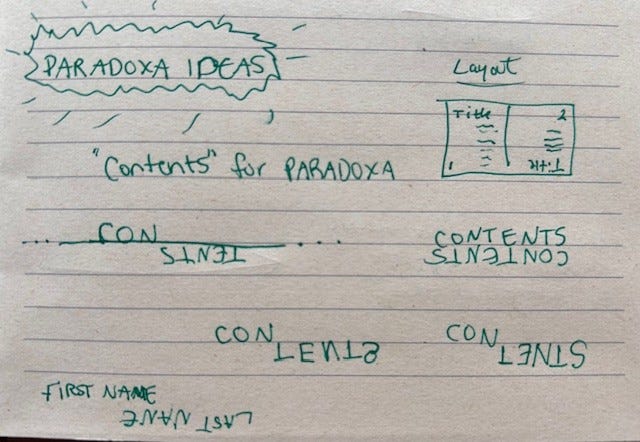 PARADOXA IDEAS
Layout
Title
2
1
Title
"Contents" for PARADOXA
... CON ...
TENTS
CONTENTS
CONTENTS
CON
TENTS
CON
TENTS
FIRST NAME
LAST NAME